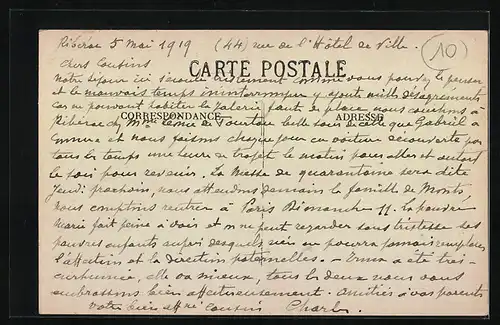 Ribérac 5 mai 1919 (44) rue de l'Hôtel de Ville.
(10)
chers Cousins
CARTE POSTALE
notre séjour ici s'écoule tristement comme vous pouvez le penser
et le mauvais temps ininterrompu y ajoute mille désagréments
car ne pouvant habiter la faute de place nous couchons à
CORRESPONDANCE ADRESSE
Ribérac chez Mme de belle sœur que Gabriel a
connue et nous faisons chaque jour en voiture découverte par
tous les temps une heure de trajet le matin pour aller et autant
le soir pour revenir. La messe de quarantaine sera dite
Jeudi prochain, nous attendons demain la famille de
nous comptons rentrer à Paris Dimanche 11. La pauvre
Marie fait peine à voir et on ne peut regarder sans tristesse ses
pauvres enfants auprès desquels rien ne pourra jamais remplacer
l'affection et la direction paternelles. - a été très
enrhumée, elle va mieux, tous les deux nous vous
embrassons bien affectueusement. Amitiés à vos parents
votre bien affné cousin Charles